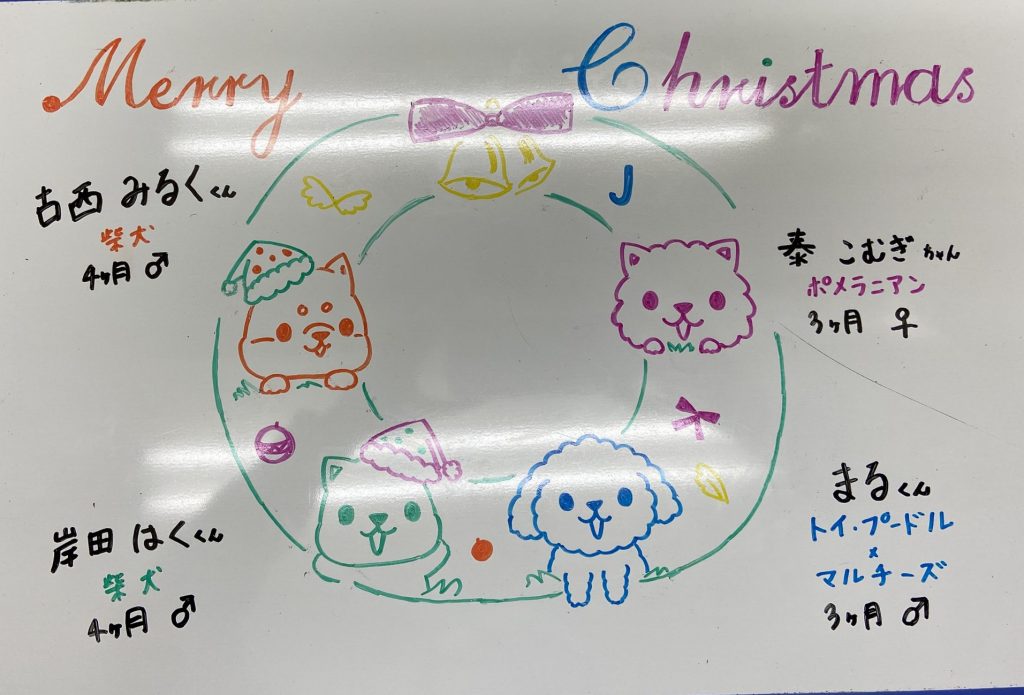 Merry Christmas
古西 みるくくん
柴犬
4ヶ月 ♂
秦 こむぎちゃん
ポメラニアン
3ヶ月 ♀
岸田 はくくん
柴犬
4ヶ月 ♂
まるくん
トイ・プードル
×
マルチーズ
3ヶ月 ♂